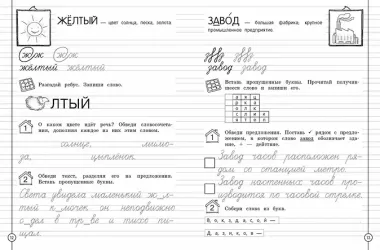 ЖЁЛТЫЙ — цвет солнца, песка, золота
жок жок
жёлтый жёлтый
Разгадай ребус. Запиши слово.
ЛТЫЙ
1 О каком цвете идёт речь? Обведи словосочета-
ния, дополняя каждое из них этим словом.
солнце, мимо-
за, цыплёнок.
2 Обведи текст, разделяя его на предложения.
Вставь пропущенные буквы.
Света увидела маленький ж_л-
тый к_мочек он неподвижно
с_дел в тр_ве и тихо пи-
щал
12
ЗАВОД — большая фабрика, крупное
промышленное предприятие
завод завод
Вставь пропущенные буквы. Прочитай получив-
шееся слово и запиши его.
1 Обведи предложения. Поставь ✓ рядом с предло-
жением, в котором слово завод обозначает зда-
ние, + — действие.
Завод часов расположен ря-
дом со станцией метро.
Завод настенных часов про-
изводится по часовой стрелке.
2 Собери слово. Запиши его.
13